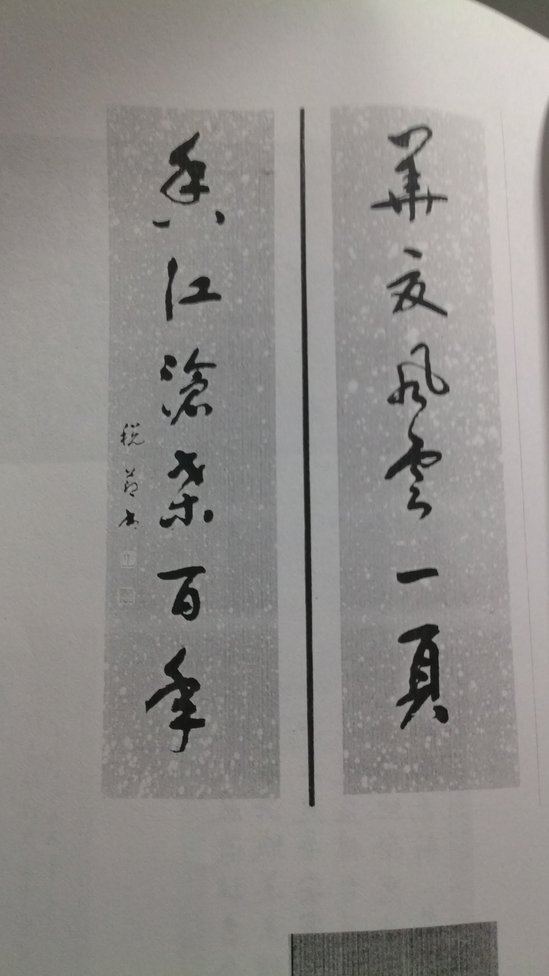 華夏風雲一頁
香江滄桑百年